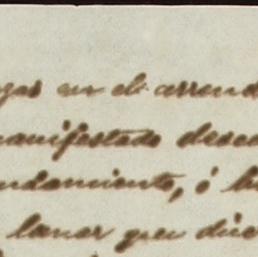 en el arrend
manifestado desea
ndamiento, ó
lanar que dice